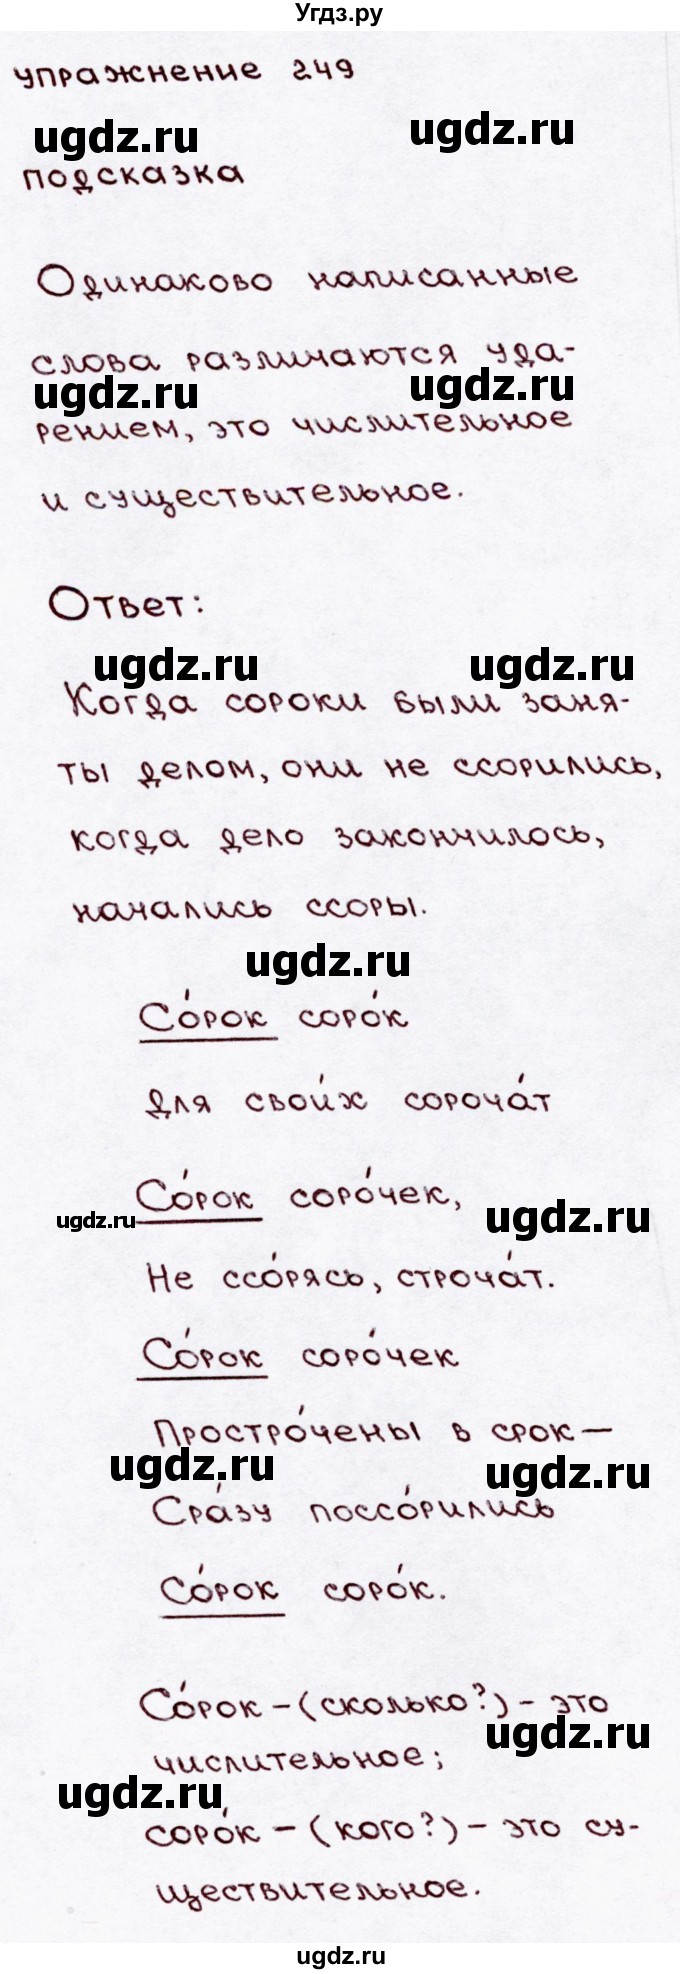 Угдз.ру
упражнение 249
ugdz.ru ugdz.ru
подсказка
Одинаково написанные
слова различаются уда-
ugdz.ru ugdz.ru
рением, это числительное
и существительное.
Ответ:
ugdz.ru ugdz.ru
Когда сороки были заня-
ты делом, они не ссорились,
когда дело закончилось,
начались ссоры.
ugdz.ru
Со́рок соро́к
для свои́х сороча́т
Со́рок соро́чек,
ugdz.ru ugdz.ru
Не ссо́рясь, строча́т.
Со́рок соро́чек
Простро́чены в срок –
ugdz.ru ugdz.ru
Сра́зу поссо́рились
Со́рок соро́к.
Со́рок – (сколько?) – это
ugdz.ru
числительное;
ugdz.ru
соро́к – (кого?) – это су-
ществительное.
ugdz.ru